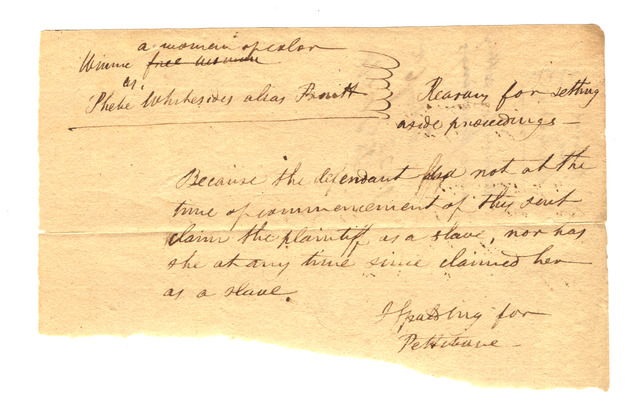 a woman of color
Winnie free woman
vs
Phebe Whitesides alias Pruitt
Reasons for setting
aside proceedings —
Because the defendant did not at the
time of commencement of this suit
claim the plaintiff as a slave, nor has
she at any time since claimed her
as a slave.
J Spalding for
Pettibone —